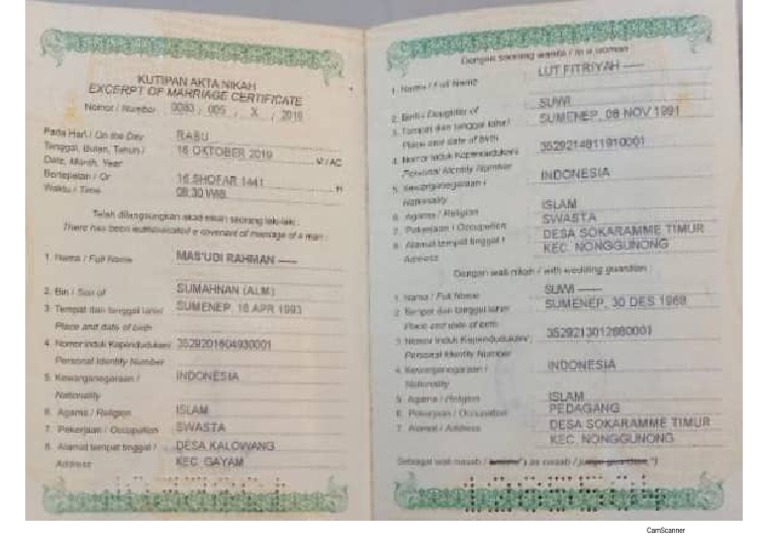 KUTIPAN AKTA NIKAH
EXCERPT OF MARRIAGE CERTIFICATE
Nomor / Number 0080 / 005 / X / 2019
Pada Hari / On the Day RABU
Tanggal, Bulan, Tahun / 16 OKTOBER 2019 M / AC
Date, Month, Year
Bertepatan / Or 16 SHOFAR 1441 H
Waktu / Time 08:30 WIB
Telah dilangsungkan akad nikah seorang laki-laki :
There has been a covenant of marriage of a man :
1. Nama / Full Name MAS'UDI RAHMAN
2. Bin / Son of SUMAHNAN (ALM)
3. Tempat dan tanggal lahir/ SUMENEP, 16 APR 1993
Place and date of birth
4. Nomor Induk Kependudukan/ 3529201604930001
Personal Identity Number
5. Kewarganegaraan / INDONESIA
Nationality
6. Agama / Religion ISLAM
7. Pekerjaan / Occupation SWASTA
8. Alamat tempat tinggal / DESA KALOWANG
Address KEC. GAYAM
Dengan seorang wanita / to a woman
1. Nama / Full Name LUT FITRIYAH
2. Binti / Daughter of SUWI
3. Tempat dan tanggal lahir/ SUMENEP, 08 NOV 1991
Place and date of birth
4. Nomor Induk Kependudukan/ 3529214811910001
Personal Identity Number
5. Kewarganegaraan / INDONESIA
Nationality
6. Agama / Religion ISLAM
7. Pekerjaan / Occupation SWASTA
8. Alamat tempat tinggal / DESA SOKARAMME TIMUR
Address KEC. NONGGUNONG
Dengan wali nikah / with wedding guardian :
1. Nama / Full Name SUWI
2. Tempat dan tanggal lahir SUMENEP, 30 DES 1968
Place and date of birth
3. Nomor Induk Kependudukan/ 3529213012680001
Personal Identity Number
4. Kewarganegaraan / INDONESIA
Nationality
5. Agama / Religion ISLAM
6. Pekerjaan / Occupation PEDAGANG
7. Alamat / Address DESA SOKARAMME TIMUR
KEC. NONGGUNONG
Sebagai wali nasab / as nasab /
CamScanner